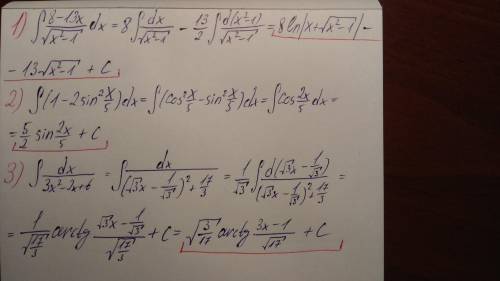 1) ∫ (8-13x)/√(x²-1) dx = 8∫ dx/√(x²-1) - 13/2 ∫ d(x²-1)/√(x²-1) = 8 ln|x+√(x²-1)| -
- 13√(x²-1) + C
2) ∫(1-2sin² x/5)dx = ∫(cos² x/5 - sin² x/5)dx = ∫cos 2x/5 dx =
= 5/2 sin 2x/5 + C
3) ∫ dx/(3x²-2x+6) = ∫ dx/((√3x - 1/√3)² + 17/3) = 1/√3 ∫ d(√3x - 1/√3)/((√3x - 1/√3)² + 17/3) =
= 1/√(17/3) arctg (√3x - 1/√3)/√(17/3) + C = √(3/17) arctg (3x-1)/√17 + C